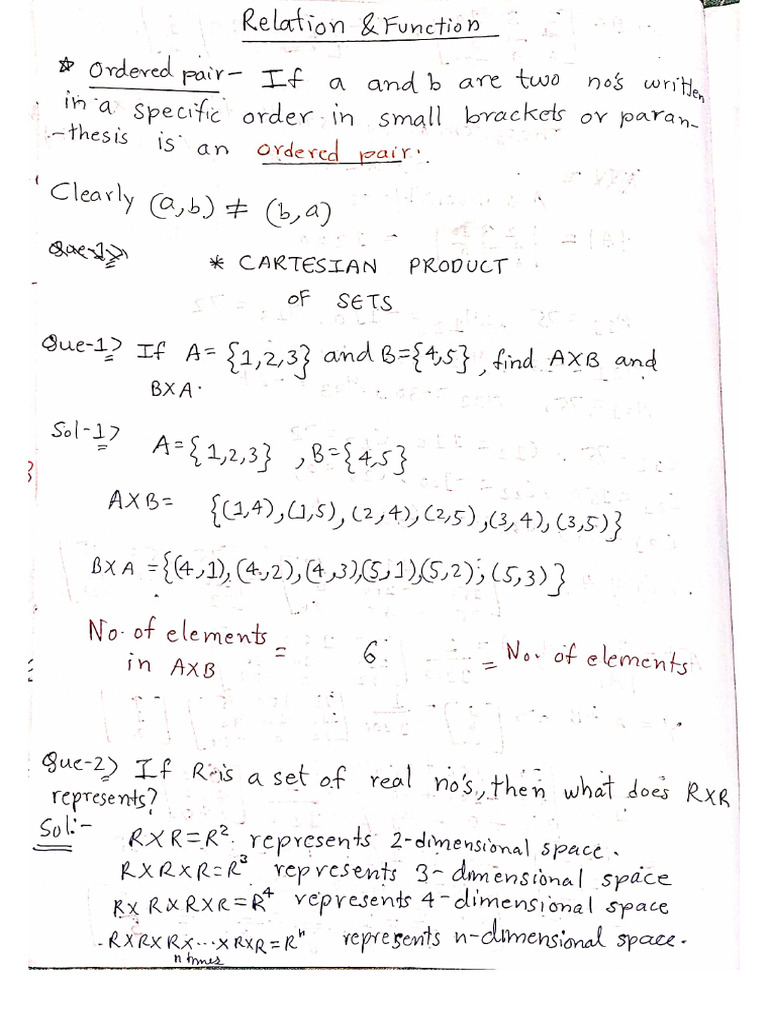 Relation & Function
* Ordered pair- If a and b are two no's written
in a specific order in small brackets or paran-
-thesis is an ordered pair.
Clearly (a,b) ≠ (b,a)
Que-1>
* CARTESIAN PRODUCT
OF SETS
Que-1> If A= {1,2,3} and B={4,5}, find AXB and
BXA.
Sol-1>
A={1,2,3} , B={4,5}
AXB= {(1,4),(1,5),(2,4),(2,5),(3,4),(3,5)}
BXA ={(4,1),(4,2),(4,3),(5,1),(5,2),(5,3)}
No. of elements
in AXB = 6 = No. of elements
Que-2> If R is a set of real no's, then what does RXR
represents?
Sol:-
RXR=R² represents 2-dimensional space.
RXRXR=R³ represents 3-dimensional space
RXRXRXR=R⁴ represents 4-dimensional space
RXRXRX...XRXR=Rⁿ represents n-dimensional space.
n times